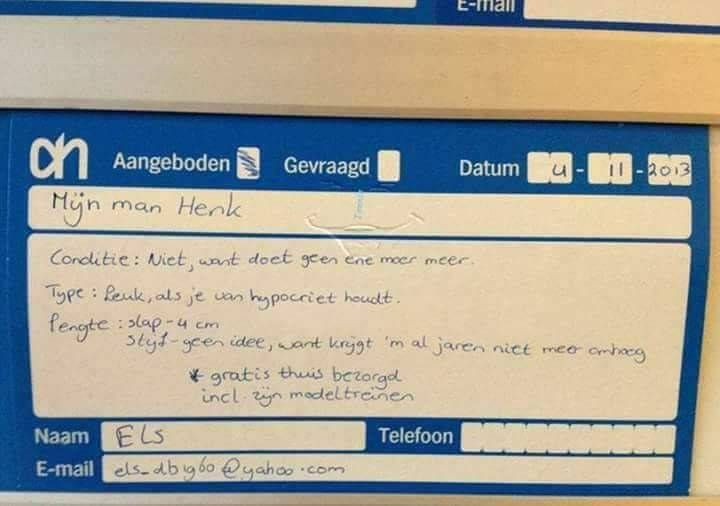 E-mail
ah Aangeboden Gevraagd Datum 4 - 11 - 2013
Mijn man Henk
Conditie: Niet, want doet geen ene moer meer.
Type: Leuk, als je van hypocriet houdt.
Lengte: slap - 4 cm
stijf - geen idee, want krijgt 'm al jaren niet meer omhoog
* gratis thuis bezorgd
incl. zijn modeltreinen
Naam ELS Telefoon
E-mail els_db1960@yahoo.com